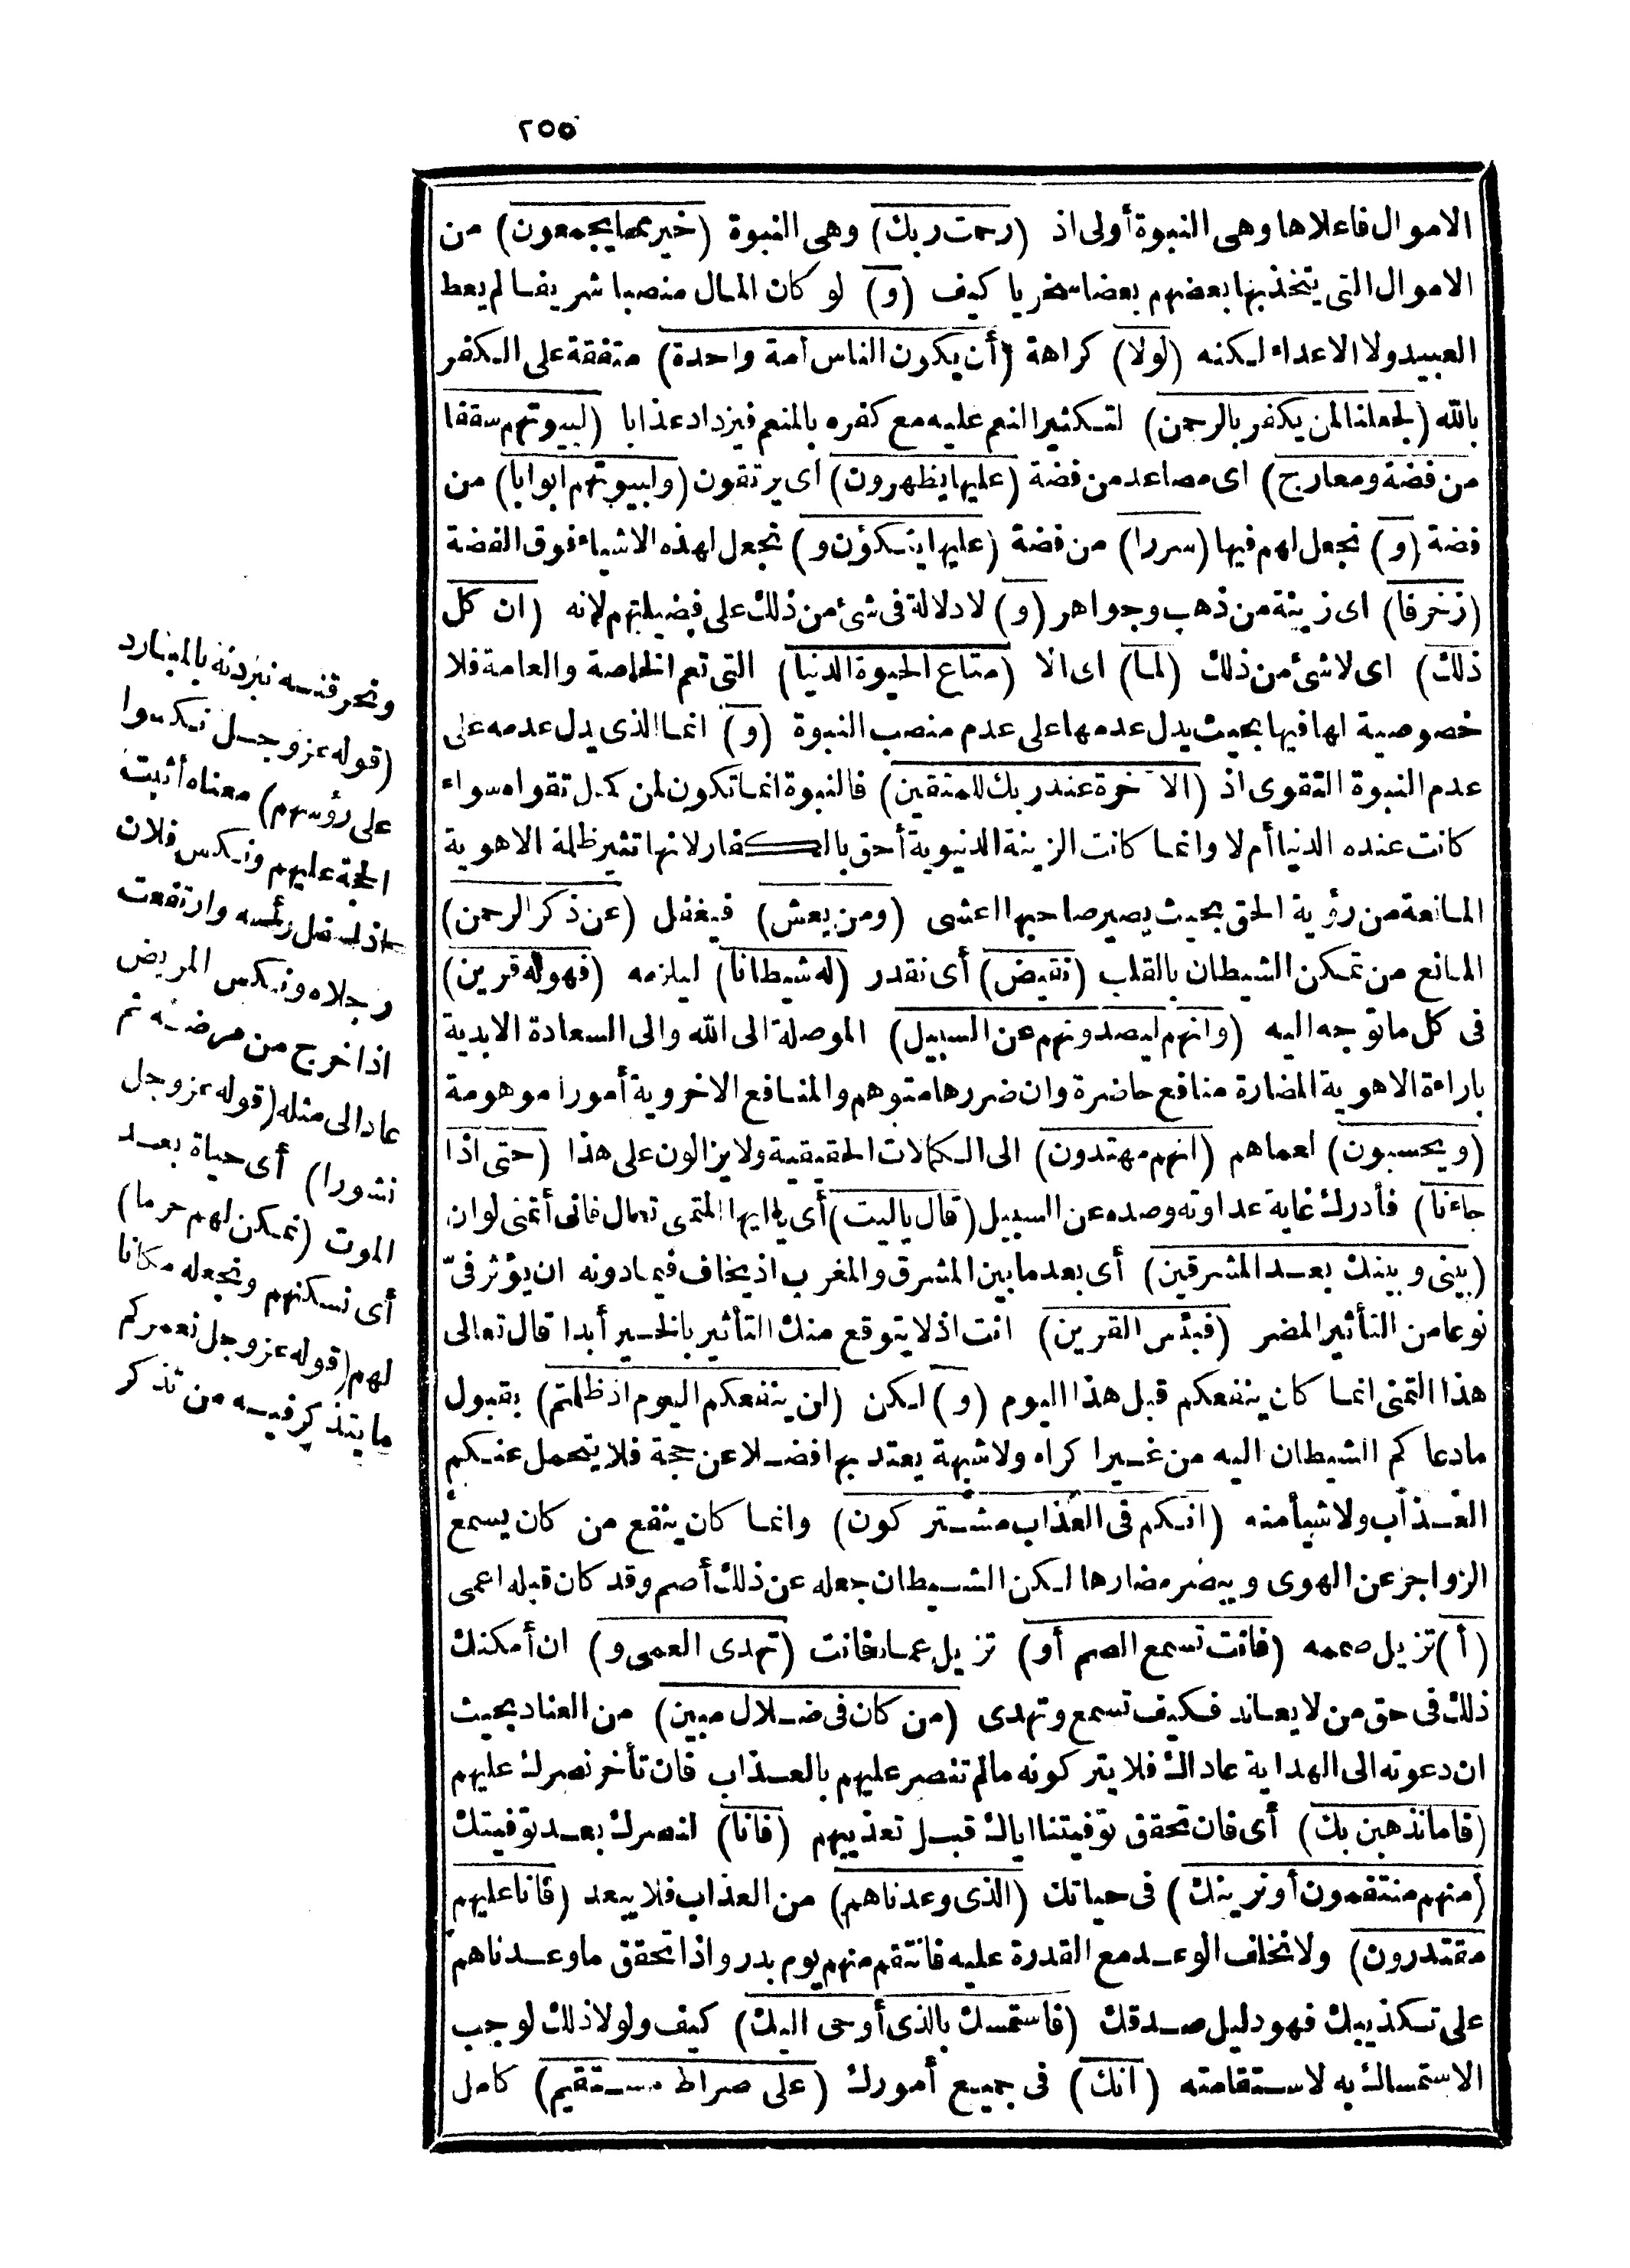 ٢٥٥
الاموال فاعلاها وهى النبوة أولى اذ (رحمت ربك) وهى النبوة (خير مما يجمعون) من
الاموال التى يتخذ بها بعضهم بعضا سخريا كيف (و) لو كان المال منصبا شريفا لم يعط
العبيد ولا الاعداء لكنه (لولا) كراهة (أن يكون الناس أمة واحدة) متفقة على الكفر
بالله (لجعلنا لمن يكفر بالرحمن) لتكثير النعم عليه مع كفره بالمنعم فيزداد عذابا (لبيوتهم سقفا
من فضة ومعارج) اى مصاعد من فضة (عليها يظهرون) اى يرتقون (ولبيوتهم ابوابا) من
فضة (و) نجعل لهم فيها (سررا) من فضة (عليها يتكؤن و) نجعل لهذه الاشياء فوق الفضة
(زخرفا) اى زينة من ذهب وجواهر (و) لا دلالة فى شئ من ذلك على فضيلتهم لانه (ان كل
ذلك) اى لا شئ من ذلك (لما) اى الا (متاع الحيوة الدنيا) التى تعم الخاصة والعامة فلا
خصوصية لها فيها بحيث يدل عدمها على عدم منصب النبوة (و) انما الذى يدل عدمه على
عدم النبوة التقوى اذ (الآخرة عند ربك للمتقين) فالنبوة انما تكون لمن كمل تقواه سواء
كانت عنده الدنيا أم لا وانما كانت الزينة الدنيوية أحق بالكفار لانها تثير ظلمة الاهوية
المانعة من رؤية الحق بحيث يصير صاحبها اعشى (ومن يعش) فيغفل (عن ذكر الرحمن)
المانع من تمكن الشيطان بالقلب (نقيض) أى نقدر (له شيطانا) ليلزمه (فهو له قرين)
فى كل ما توجه اليه (وانهم ليصدونهم عن السبيل) الموصلة الى الله والى السعادة الابدية
باراءة الاهوية المضارة منافع حاضرة وان ضررها متوهم والمنافع الاخروية أمورا موهومة
(ويحسبون) لعماهم (انهم مهتدون) الى الكمالات الحقيقية ولا يزالون على هذا (حتى اذا
جاءنا) فأدرك غاية عداوته وصده عن السبيل (قال ياليت) أى يا ايها المتمنى تعال فانى أتمنى لو ان
(بينى وبينك بعد المشرقين) أى بعد ما بين المشرق والمغرب اذ يخاف فيما دونه ان يؤثر فىّ
نوعا من التأثير المضر (فبئس القرين) انت اذ لا يتوقع منك التأثير بالخير أبدا قال تعالى
هذا التمنى انما كان ينفعكم قبل هذا اليوم (و) لكن (لن ينفعكم اليوم اذ ظلمتم) بقبول
ما دعاكم الشيطان اليه من غير اكراه ولا شبهة يعتد بها فضلا عن حجة فلا يتحمل عنكم
العذاب ولا شيأ منه (انكم فى العذاب مشتركون) وانما كان ينفع من كان يسمع
الزواجر عن الهوى ويبصر مضارها لكن الشيطان جعله عن ذلك أصم وقد كان قبله اعمى
(أ) تزيل صممه (فانت تسمع الصم أو) تزيل عماه فانت (تهدى العمى و) ان أمكنك
ذلك فى حق من لا يعاند فكيف تسمع وتهدى (من كان فى ضلال مبين) من العناد بحيث
ان دعوته الى الهداية عاداك فلا يتركونه ما لم تنصر عليهم بالعذاب فان تأخر نصرك عليهم
(فاما نذهبن بك) أى فان تحقق توفيتنا اياك قبل تعذيبهم (فانا) لنصرك بعد توفيتك
(منهم منتقمون أو نرينك) فى حياتك (الذى وعدناهم) من العذاب فلا يبعد (فانا عليهم
مقتدرون) ولا نخلف الوعد مع القدرة عليه فانتقم منهم يوم بدر واذا تحقق ما وعدناهم
على تكذيبك فهو دليل صدقك (فاستمسك بالذى أوحى اليك) كيف ولولا ذلك لوجب
الاستمساك به لاستقامته (انك) فى جميع أمورك (على صراط مستقيم) كامل
ونحرقنه نبردنه بالمبارد
(قوله عز وجل نكسوا
على رؤسهم) معناه أثبت
الحجة عليهم ونكس فلان
اذا سفل رأسه وارتفعت
رجلاه ونكس المريض
اذا خرج من مرضه ثم
عاد الى مثله (قوله عز وجل
نشورا) أى حياة بعد
الموت (نمكن لهم حرما)
أى نسكنهم ونجعله مكانا
لهم (قوله عز وجل نعمركم
ما يتذكر فيه من تذكر